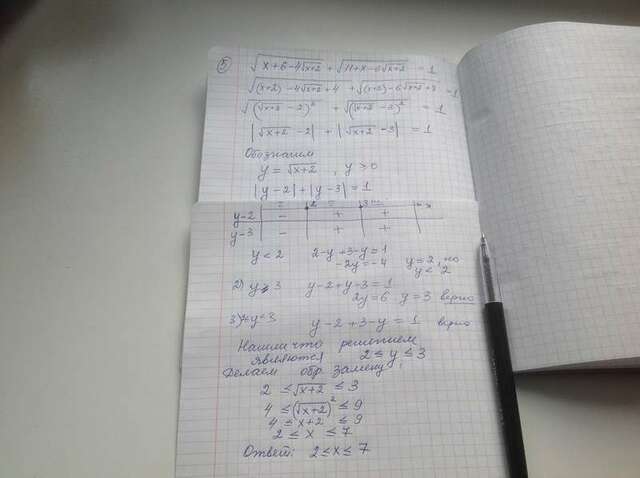 ⑤ √(x+6-4√(x+2)) + √(11+x-6√(x+2)) = 1
√((x+2)-4√(x+2)+4) + √((x+2)-6√(x+2)+9) = 1
√((√(x+2) - 2)²) + √((√(x+2) - 3)²) = 1
|√(x+2) - 2| + |√(x+2) - 3| = 1
Обозначим
y = √(x+2) , y ≥ 0
|y-2| + |y-3| = 1
2 3 x
y-2 - + +
y-3 - + +
y < 2 2-y+3-y=1
-2y=-4 y=2, но
y < 2
2) y ≥ 3 y-2+y-3=1
2y=6 y=3 верно
3) 2≤y<3 y-2+3-y = 1 верно
Нашли что решением
являются 2 ≤ y ≤ 3
Делаем обр. замену
2 ≤ √(x+2) ≤ 3
4 ≤ (√(x+2))² ≤ 9
4 ≤ x+2 ≤ 9
2 ≤ x ≤ 7
Ответ: 2≤x≤7